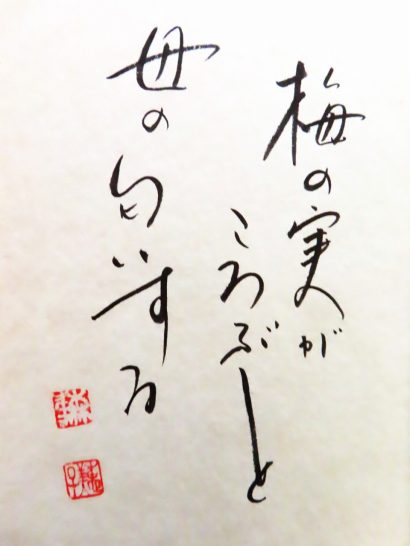 梅の実が
ころぶと
母の匂いする